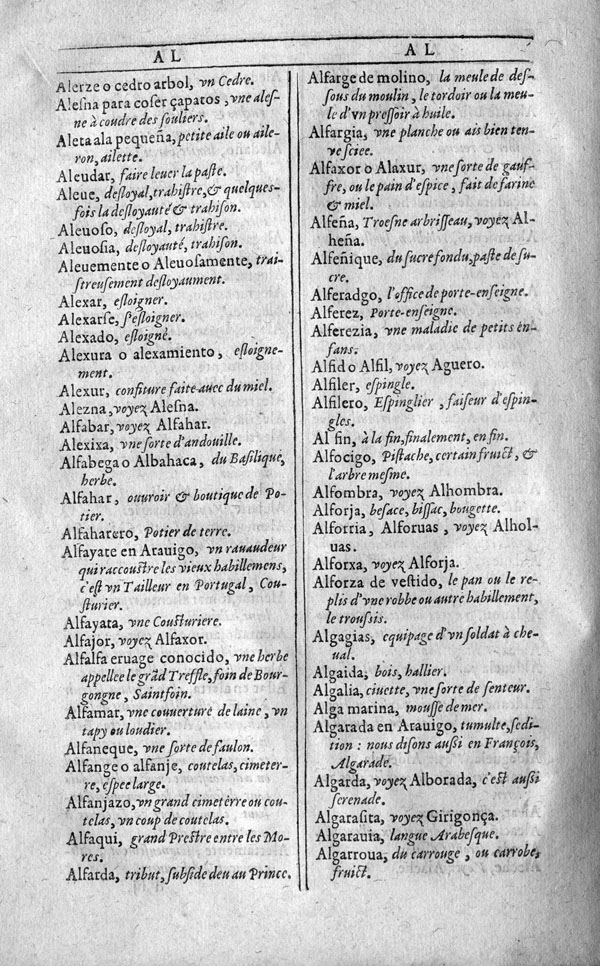 AL
AL
Alerze o cedro arbol, vn Cedre.
Aleſna para coſer çapatos, vne aleſ-
ne à coudre des ſouliers.
Aleta ala pequeña, petite aile ou aile-
ron, ailette.
Aleudar, faire leuer la paſte.
Aleue, deſloyal, trahiſtre, & quelques-
fois la deſloyauté & trahiſon.
Aleuoſo, deſloyal, trahiſtre.
Aleuoſia, deſloyauté, trahiſon.
Aleuemente o Aleuoſamente, trai-
ſtreuſement deſloyaument.
Alexar, eſloigner.
Alexarſe, ſ'eſloigner.
Alexado, eſloigné.
Alexura o alexamiento, eſloigne-
ment.
Alexur, confiture faite auec du miel.
Alezna, voyez Aleſna.
Alfabar, voyez Alfahar.
Alexixa, vne ſorte d'andouille.
Alfabega o Albahaca, du Baſilique,
herbe.
Alfahar, ouuroir & boutique de Po-
tier.
Alfaharero, Potier de terre.
Alfayate en Arauigo, vn rauaudeur
qui raccouſtre les vieux habillemens,
c'eſt vn Tailleur en Portugal, Cou-
ſturier.
Alfayata, vne Couſturiere.
Alfajor, voyez Alfaxor.
Alfalfa eruage conocido, vne herbe
appellee le grãd Treffle, foin de Bour-
gongne, Saintfoin.
Alfamar, vne couuerture de laine, vn
tapy ou loudier.
Alfaneque, vne ſorte de faulon.
Alfange o alfanje, coutelas, cimeter-
re, eſpee large.
Alfanjazo, vn grand cimeterre ou cou-
telas, vn coup de coutelas.
Alfaqui, grand Preſtre entre les Mo-
res.
Alfarda, tribut, ſubſide deu au Prince.
Alfarge de molino, la meule de deſ-
ſous du moulin, le tordoir ou la meu-
le d'vn preſſoir à huile.
Alfargia, vne planche ou ais bien ten-
ve ſciee.
Alfaxor o Alaxur, vne ſorte de gauf-
fre, ou le pain d'eſpice, fait de farine
& miel.
Alfeña, Troeſne arbriſſeau, voyez Al-
heña.
Alfeñique, du ſucre fondu, paſte de ſu-
cre.
Alferadgo, l'office de porte-enſeigne.
Alferez, Porte-enſeigne.
Alferezia, vne maladie de petits en-
fans.
Alfid o Alfil, voyez Aguero.
Alfiler, eſpingle.
Alfilero, Eſpinglier, faiſeur d'eſpin-
gles.
Al fin, à la fin, finalement, en fin.
Alfocigo, Piſtache, certain fruict, &
l'arbre meſme.
Alfombra, voyez Alhombra.
Alforja, beſace, biſſac, bougette.
Alforria, Alforuas, voyez Alhol-
uas.
Alforxa, voyez Alforja.
Alforza de veſtido, le pan ou le re-
plis d'vne robbe ou autre habillement,
le trouſſis.
Algagias, equipage d'vn ſoldat à che-
ual.
Algaida, bois, hallier.
Algalia, ciuette, vne ſorte de ſenteur.
Alga marina, mouſſe de mer.
Algarada en Arauigo, tumulte, ſedi-
tion : nous diſons auſſi en François,
Algarade.
Algarda, voyez Alborada, c'eſt auſſi
ſerenade.
Algaraſita, voyez Girigonça.
Algarauia, langue Arabeſque.
Algarroua, du carrouge, ou carrobe,
fruict.